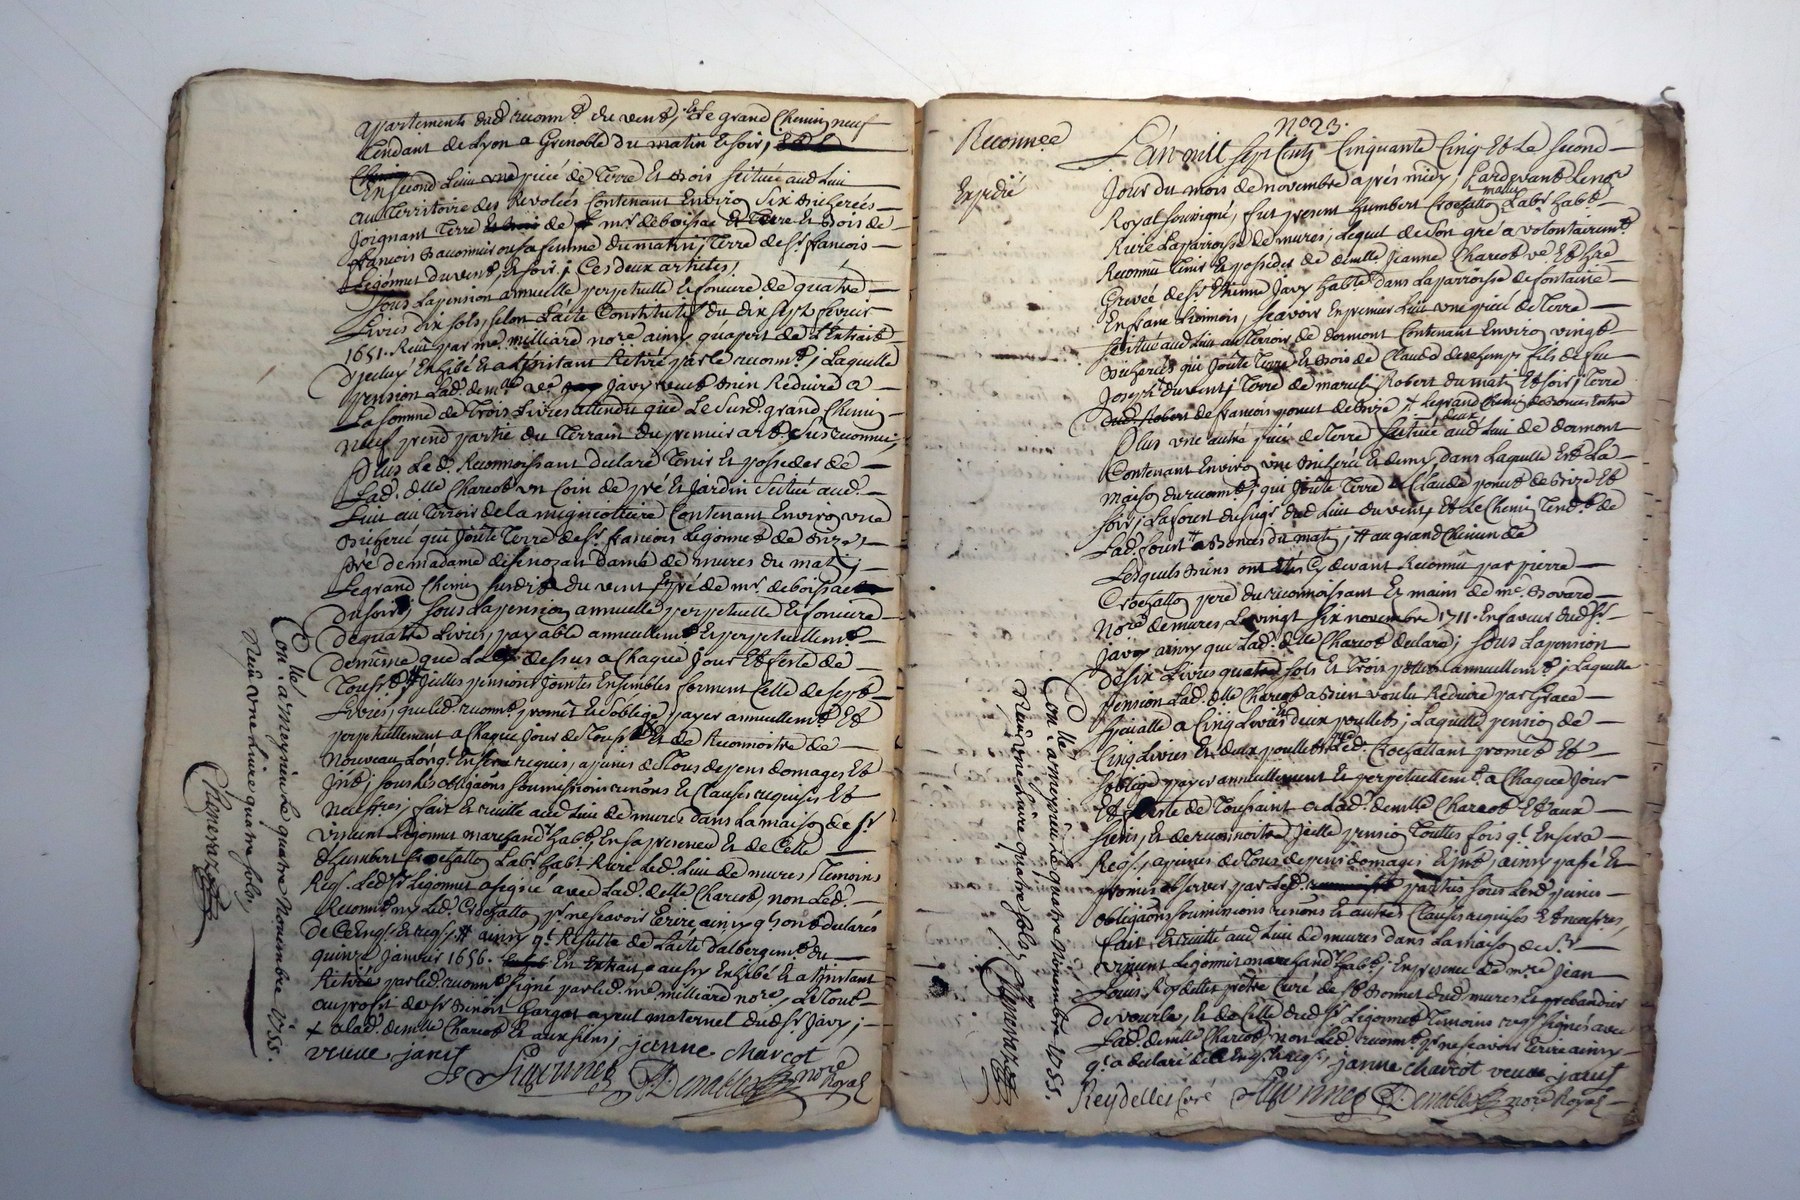 appartements dud. reconnt. du vent, et Le grand Chemin neuf
tendant de Lyon a Grenoble du matin et soir;
En second Lieu une piéce de Terre et Bois scituée aud. Lieu
au Territoire des Revolées Contenant Environ Six Bicherées
Joignant Terre de mr. deboissac Terre et Bois de
françois ou sa femme du matin, Terre de sr. francois
Legonnet du vent, et soir; Ces deux articles
Sous La pension annuelle perpetuelle et fonciere de quatre
Livres dix sols, selon L'acte Constitutif du dix sept fevrier
1651. Reçû par me. milliard nore. ainsy quapert de L'Extrait
d'jceluy Exhibé et a l'jnstant Retiré par le reconnt.; Laquelle
pension Lad. demlle. ve. javy veut bien Reduire a
La somme de Trois Livres attendu que Le susd. grand Chemin
neuf prend partie du Terrain du premier art. Susreconnu;
Plus Le d. Reconnoissant declare Tenir et posseder de
Lad. dlle Charcot un Coin de pré et Jardin Scitué aud.
Lieu au Terroir de la Contenant Environ une
Bicherée qui Joûte Terre de sr. francois Legonnet de Bize
Pré de madame de senozan dame de mures du matin
Le grand Chemin susdit du vent Et pré de mr. deboissac
du soir; Sous La pension annuelle perpetuelle et fonciere
de quatre Livres payable annuellemt. et perpetuellemt.
demême que La dessus a Chaque Jour et feste de
Toust. Jcelles pensions Jointes Ensembles forment Celle de sept
Livres, que led. reconnt. promet et s'oblige payer annuellemt. et
perpetuellement a Chaque Jour de Toust et de Reconnoitre de
Nouveau Lorsq. En sera requis, a peines de Tous depens domages et
Jnt; sous les obligaons soumissions renons et Clauses requises et
necessres; fait et recitté aud. Lieu de mures dans La maison de sr.
vincent Legonnet marchand habt. En sa presence et de Celle
d'humbert Crochatton Labr. habt. Rière led. Lieu de mures Temoins
Reqs. Led. sr. Legonnet a signé avec Lad. delle Charcot, non Led.
Reconnt. ny Led. Crochatton pr. ne scavoir Ecrire ainsy qs. ont declarés
de Ce Enqs. et reqs. ainsy q. Resulte de L'acte d'albergemt. du
quinze Janvier 1656. En Extrait aussy Exhibé et a l'jnstant
Retiré par led. reconnt. signé par led. me. milliard nore, a Tout
au profit de sr. Benoit Gargat ayeul maternel dud. sr. Javy;
+ a lad. demlle Charcot et aux siens; janne charcot
veuve javit
Legonnet Demeble nore Royal
Conllé. a Meyzieu Le quatre Novembre 1755.
Reçu une Livre quatre sols,
Chenevaz
No. 23.
Reconnce
Expedié
L'an mil sept Cents Cinquante Cinq et Le second
Jour du mois de novembre après midy; Pardevant Le nore
Royal soussigné, fut present humbert Crochatton Labr. habt.
Riere La parroisse de mures; Lequel de son gré a volontairemt.
Reconnû Tenir et posseder de demlle Jeanne Charcot ve. et here
Grevée de sr. Etienne Javy habte. dans La parroisse de fontaine
En franc Lionnois, scavoir En premier Lieu une piéce de Terre
scituée aud. Lieu au Terroir de dormont Contenant Environ vingt
Bicherées qui Joûte Terre et Bois de Claude deschamps fils de feu
Joseph du vent; Terre de marcel Robert du matin et soir; Terre
dud. Robert de françois ponnet de Bize
Plus une autre piéce de Terre scituée aud. Lieu de dormont
Contenant Environ une Bicherée et demy, dans Laquelle Est La
maison du reconnt; qui Joûte Terre de Claude ponnet de Bize et
soir; La fôrest du sieur dud. Lieu du vent, et Le Chemin Tendt. de
Lad. fourt. a Bonces du matin; # au grand Chemin de
Lesquels Biens ont étés Cy devant Reconnû par pierre
Crochatton pere du reconnoissant Es mains de me. Bovard
Nore de mures, Le vingt six novembre 1711. En faveur dud. sr.
Javy ainsy que Lad. delle Charcot declare; sous La pension
de six Livres quatre sols et Trois annuellemt.; Laquelle
pension Lad. dlle Charcot a Bien voulu Reduire par Grace
speciale a Cinq Livres deux poullets; Laquelle pension de
Cinq Livres et deux poullets Led. Crochattant promet et
s'oblige payer annuellement et perpetuellemt. a Chaque Jour
et feste de Toussaint a Lad. demlle Charcot et aux
siens, et de reconnoitre Jcelle pension Toutes fois q. En sera
Reqs. a peines de Tous depens domages et jnt; ainsy passé et
promis observer par Les d. parties sous Les d. peines
obligaons soumissions renons et autres Clauses requises et necessres;
fait et recitté aud. Lieu de mures dans La maison de sr.
vincent Legonnet marchand habt; En presence de mre Jean
Louis Reydellet prêtre Curé de st Bonnet dud. mures et prebandier
de vourles, et de Celle dud. sr. Legonnet Temoins reqs. signés avec
Lad. demlle Charcot, non Led. reconnt. pr. ne scavoir Ecrire ainsy
q. a declaré de ce Enqs. et reqs. janne charcot veuve javit
Reydellet Curé Legonnet Demeble nore Royal
Conllé. a meyzieu Le quatre Novembre 1755.
Reçu une Livre quatre sols,
Chenevaz